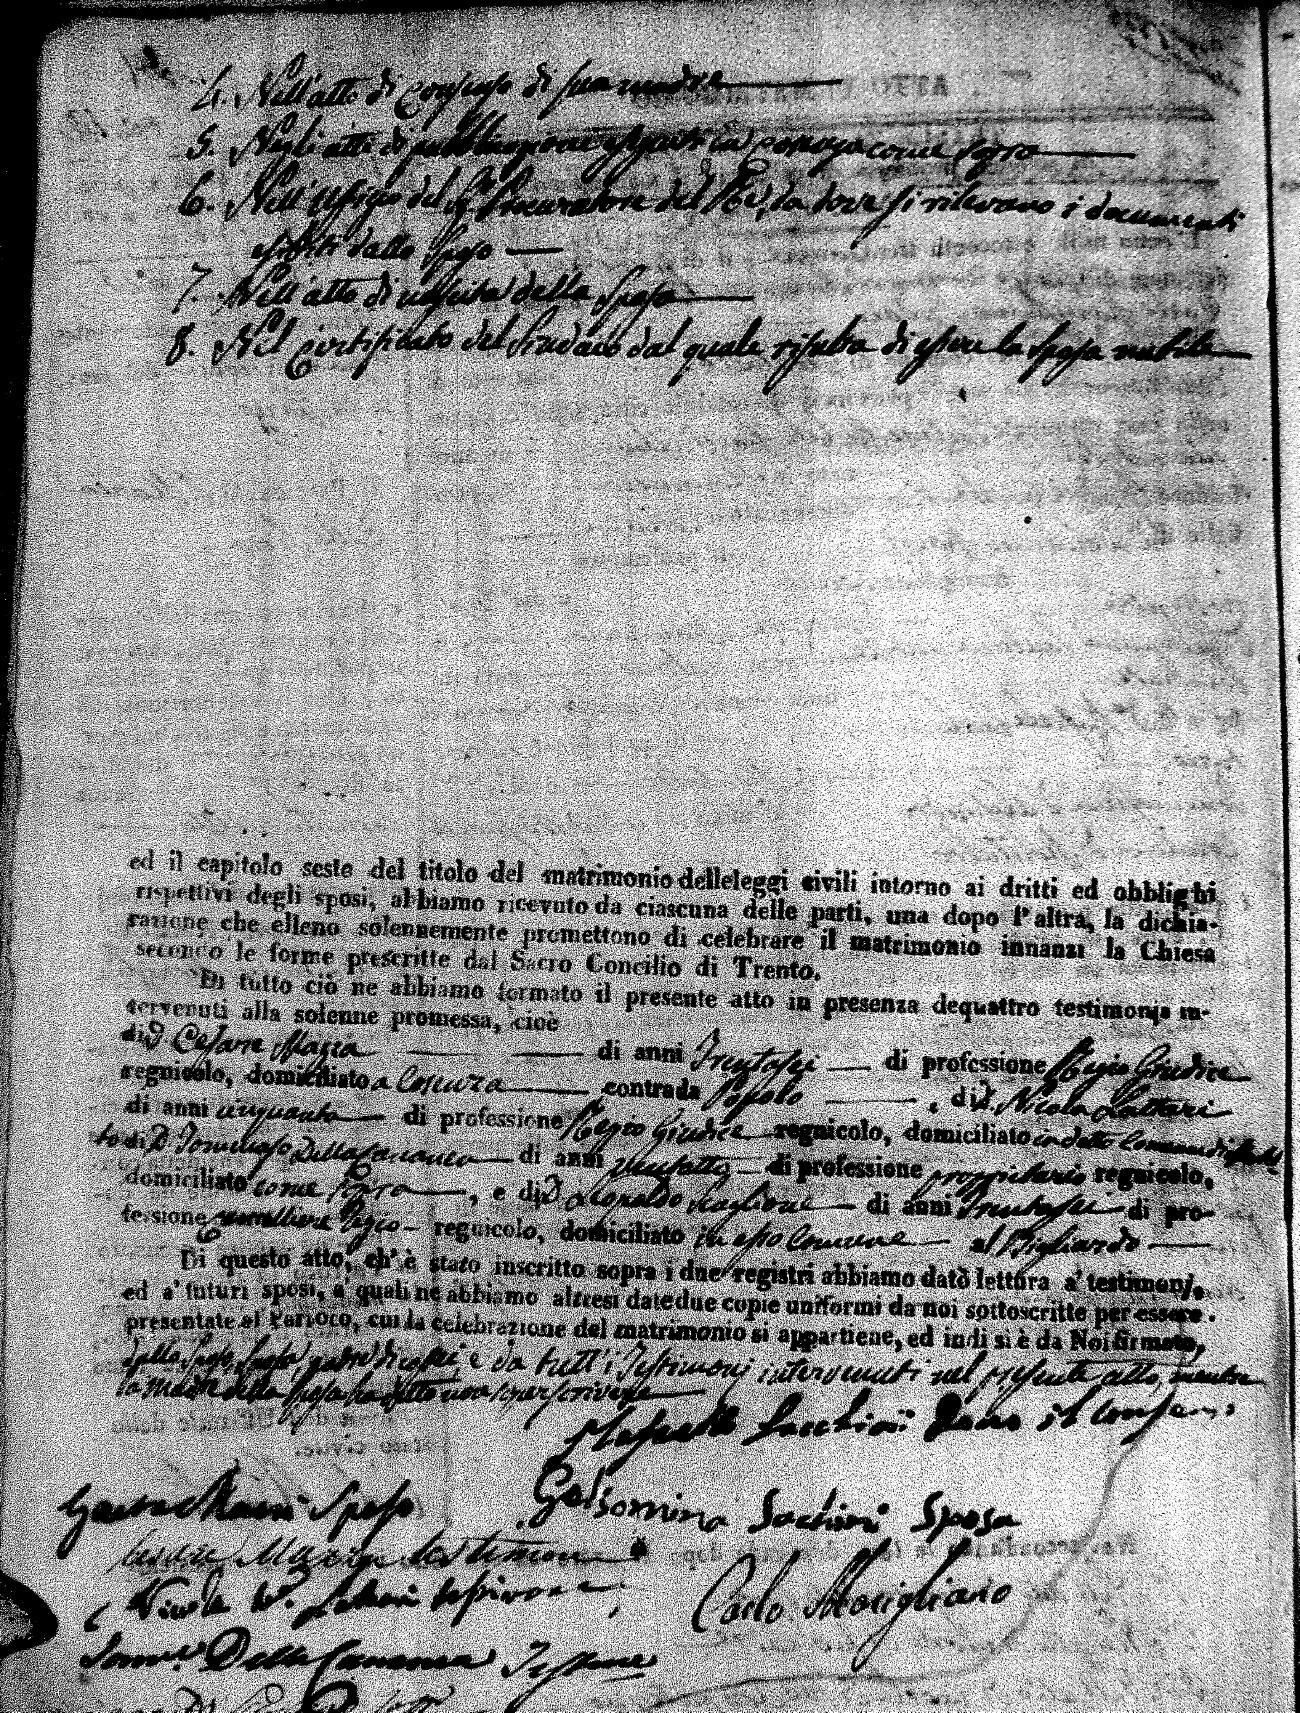 4. Nell'atto di consenso di sua madre
5. Negli atti di pubblicazione in Cosenza come sopra
6. Nell'Uffizio del Procuratore del Re, da dove si rilevano i documenti
esibiti dallo Sposo
7. Nell'atto di nascita della Sposa
8. Nel Certificato del Sindaco dal quale risulta di essere la sposa nubile
ed il capitolo seste del titolo del matrimonio delleleggi civili intorno ai dritti ed obblighi
rispettivi degli sposi, abbiamo ricevuto da ciascuna delle parti, una dopo l'altra, la dichia-
razione che elleno solennemente promettono di celebrare il matrimonio innanzi la Chiesa
secondo le forme prescritte dal Sacro Concilio di Trento.
Di tutto ciò ne abbiamo formato il presente atto in presenza dequattro testimonj in-
tervenuti alla solenne promessa, cioè
di D. Cesare Mazza di anni Trentasei di professione Regio Giudice
regnicolo, domiciliato a Cosenza contrada Popolo, di D. Nicola Lattari
di anni cinquanta di professione Regio Giudice regnicolo, domiciliato in detto Comune di
to di D. Tommaso Dellacananea di anni ventisette di professione proprietario regnicolo,
domiciliato come sopra, e di D. Scaglione di anni Trentasei di pro-
fessione Regio regnicolo, domiciliato in esso Comune al Bigliardo
Di questo atto, ch'è stato inscritto sopra i due registri abbiamo datò lettura a' testimonj,
ed a' futuri sposi, a' quali ne abbiamo altresi datedue copie uniformi da noi sottoscritte per essere
presentate al Parroco, cui la celebrazione del matrimonio si appartiene, ed indi si è da Noi firmato,
dallo Sposo, Sposa, padre di costei e da tutt'i Testimonj intervenuti nel presente atto, mentre
la madre della Sposa ha detto non saper scrivere
Raffaele Sacchini dono il consenso
Gaetano Sposo Gelsomina Sachini Sposa
Cesare Mazza testimone
Nicola Lattari testimone Carlo Marigliano
Tomm. Della Cananea Testimone